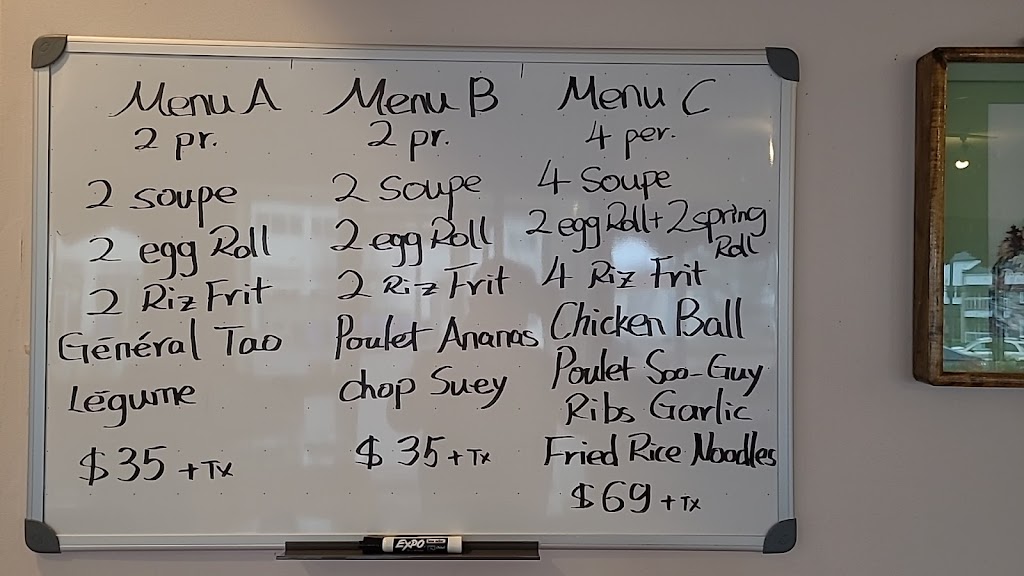 Menu A
2 pr.
2 soupe
2 egg Roll
2 Riz Frit
Général Tao
Légume
$35 + Tx
Menu B
2 pr.
2 soupe
2 egg Roll
2 Riz Frit
Poulet Ananas
chop Suey
$35 + Tx
Menu C
4 per.
4 Soupe
2 egg Roll + 2 spring
Roll
4 Riz Frit
Chicken Ball
Poulet Soo-Guy
Ribs Garlic
Fried Rice Noodles
$69 + Tx
EXPO